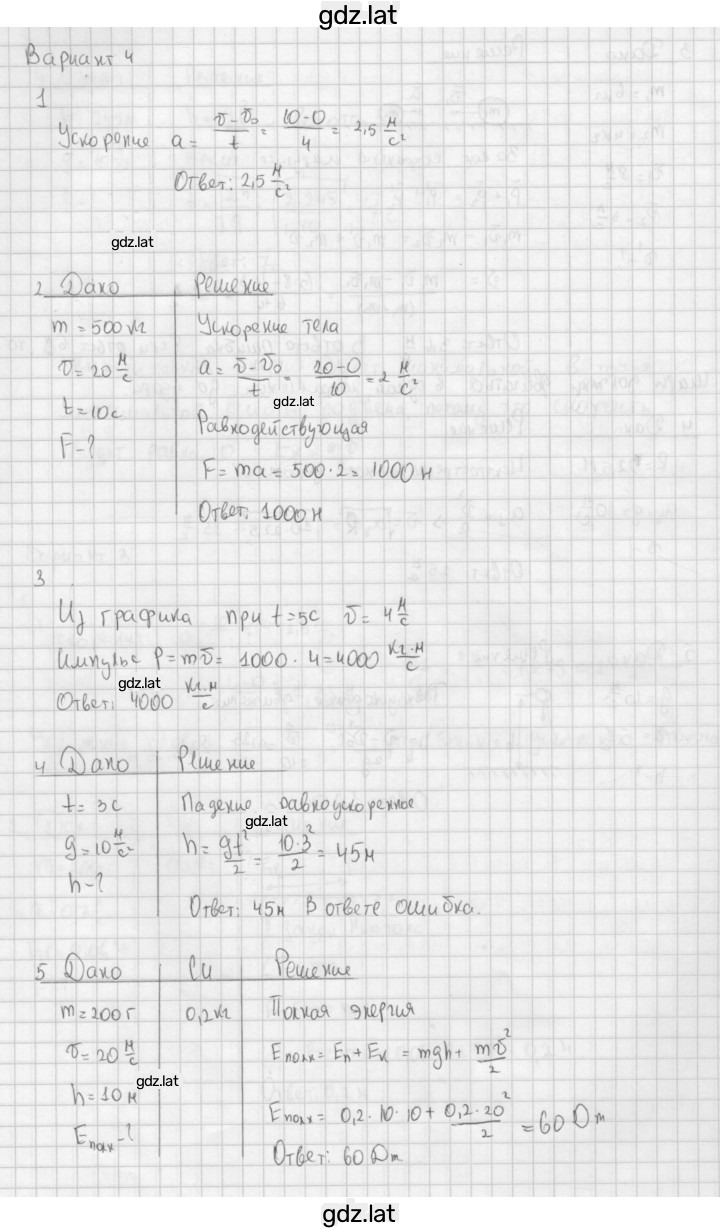 gdz.lat
Вариант 4
1
Ускорение a = (v - v₀)/t = (10-0)/4 = 2,5 м/с²
Ответ: 2,5 м/с²
gdz.lat
2 Дано Решение
m = 500 кг Ускорение тела
v = 20 м/с a = (v - v₀)/t = (20-0)/10 = 2 м/с²
gdz.lat
t = 10с Равнодействующая
F - ? F = ma = 500·2 = 1000 н
Ответ: 1000 н
3
Из графика при t = 5с v = 4 м/с
Импульс p = mv = 1000 · 4 = 4000 кг·м/с
gdz.lat
Ответ: 4000 кг·м/с
4 Дано Решение
t = 3с Падение равноускоренное
gdz.lat
g = 10 м/с² h = gt²/2 = 10·3²/2 = 45м
h - ?
Ответ: 45м В ответе ошибка.
5 Дано Си Решение
m = 200 г 0,2 кг Полная энергия
v = 20 м/с Eполн = Eп + Eк = mgh + mv²/2
gdz.lat
h = 10 м Eполн = 0,2 · 10 · 10 + 0,2 · 20²/2 = 60 Дж
Eполн - ? Ответ: 60 Дж
gdz.lat